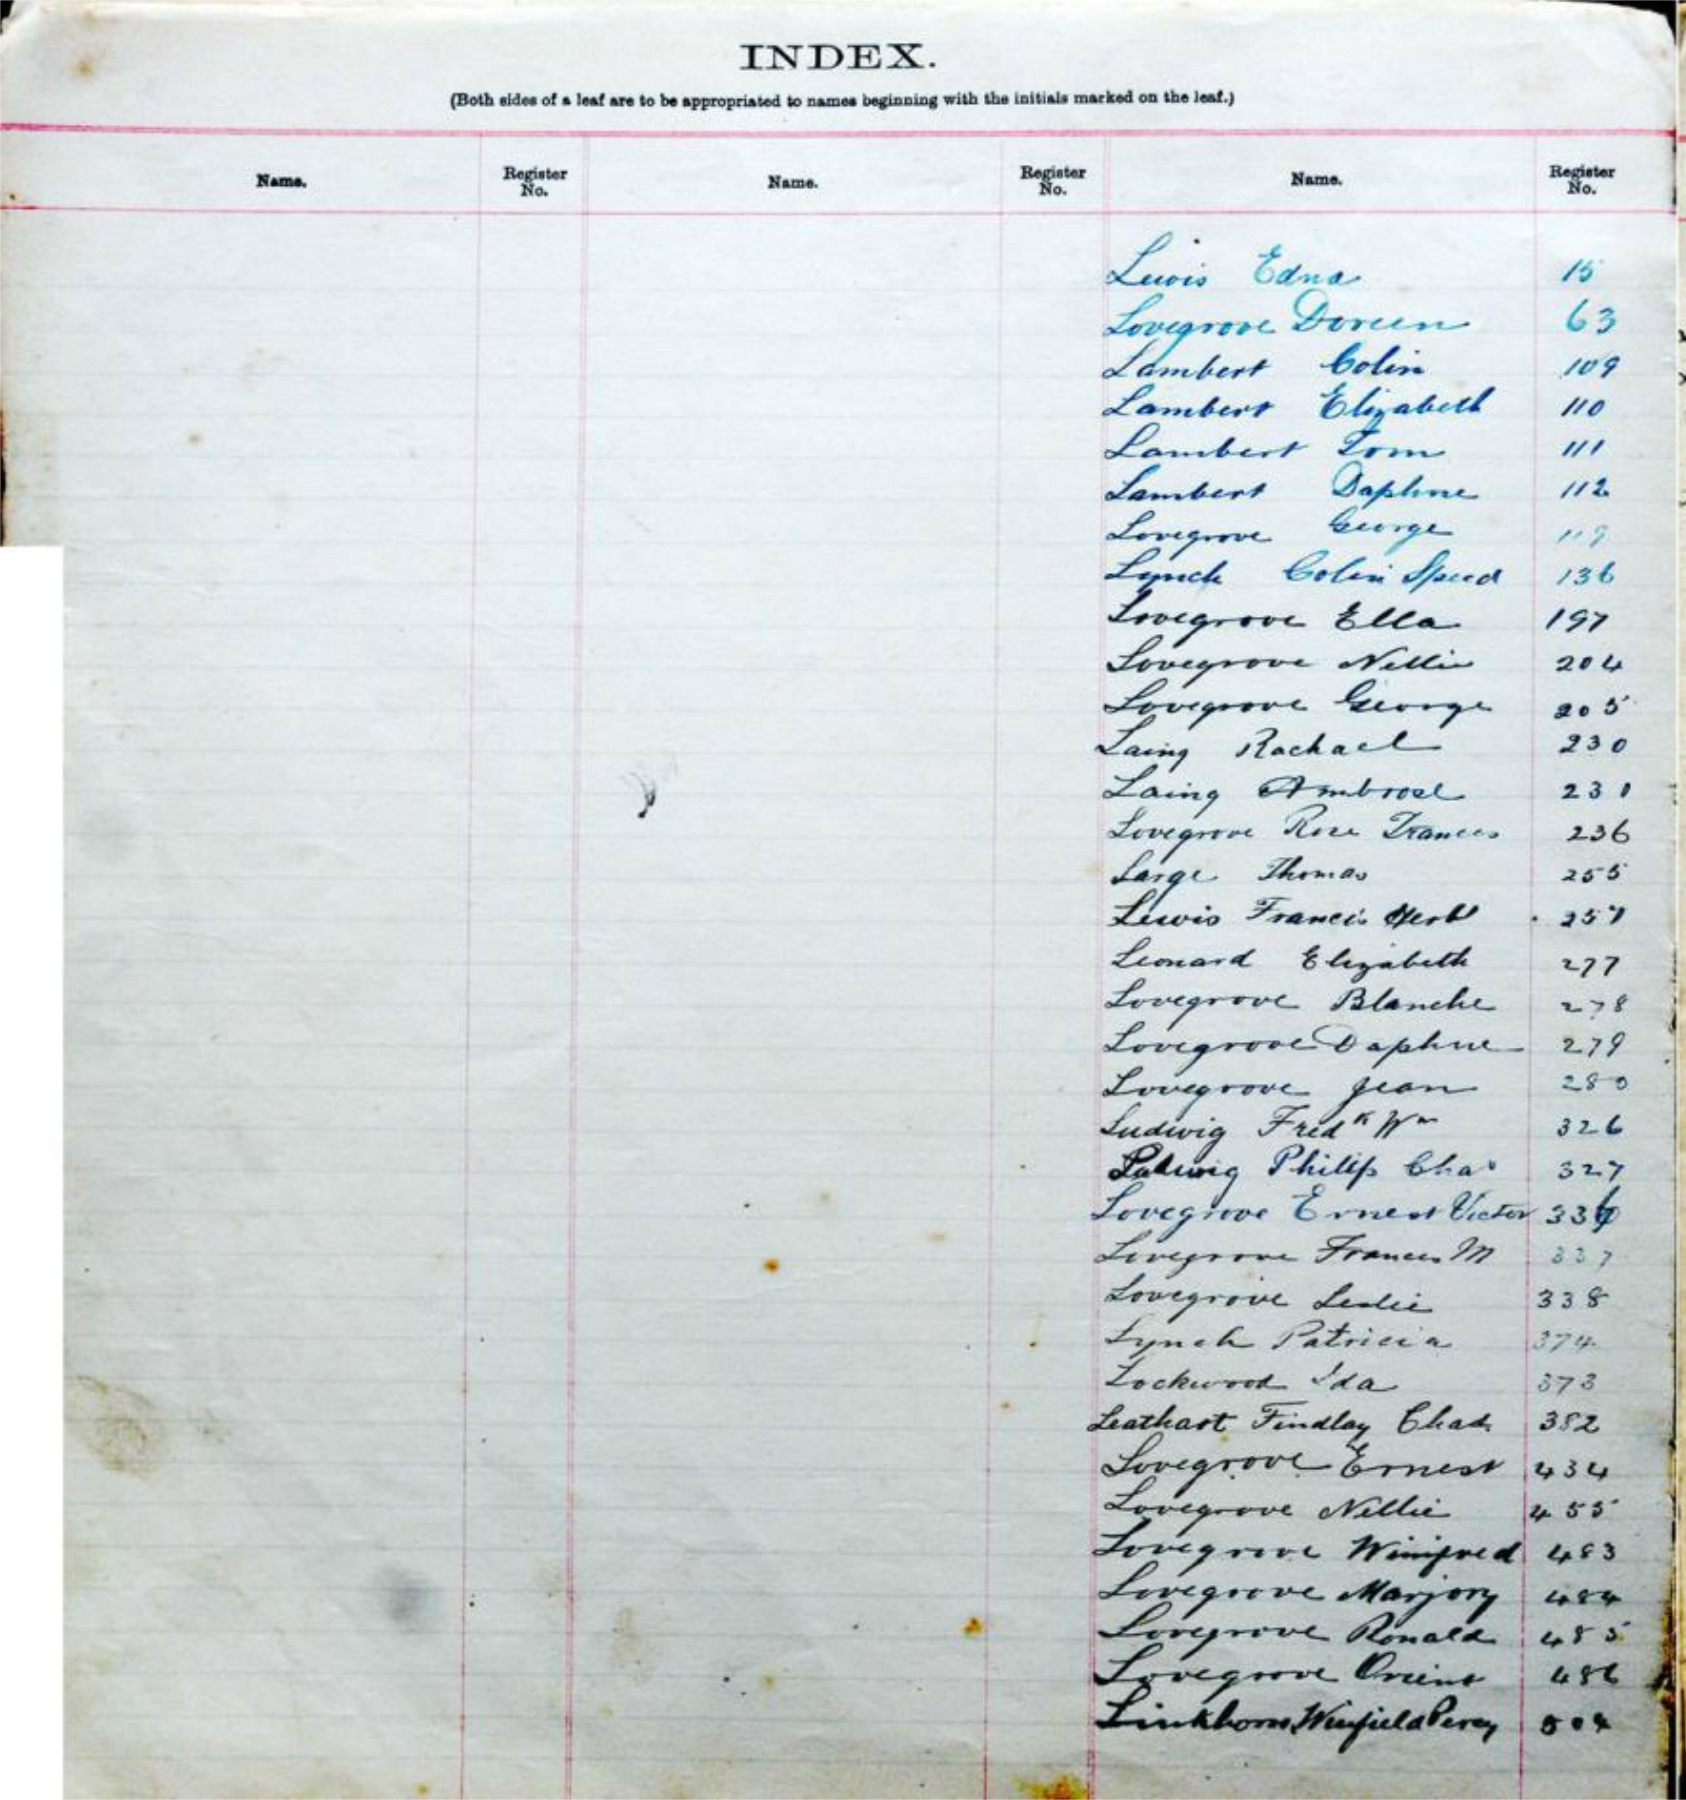 INDEX.
(Both sides of a leaf are to be appropriated to names beginning with the initials marked on the leaf.)
Name. Register No. Name. Register No. Name. Register No.
Lewis Edna 15
Lovegrove Doreen 63
Lambert Colin 109
Lambert Elizabeth 110
Lambert Tom 111
Lambert Daphne 112
Lovegrove George 119
Lynch Colin Speed 136
Lovegrove Ella 197
Lovegrove Nellie 204
Lovegrove George 205
Laing Rachael 230
Laing Ambrose 231
Lovegrove Rose Frances 236
Large Thomas 255
Lewis Francis Herbt
Leonard Elizabeth 277
Lovegrove Blanche 278
Lovegrove Daphne 279
Lovegrove Jean 280
Ludwig Fredk Wm 326
Ludwig Philip Chas 327
Lovegrove Ernest Victor 336
Lovegrove Frances M 337
Lovegrove Leslie 338
Lynch Patricia 374
Lockwood Ida 373
Leathart Findlay Chas 382
Lovegrove Ernest 434
Lovegrove Nellie 455
Lovegrove Winifred 483
Lovegrove Marjory 484
Lovegrove Ronald 485
Lovegrove Orient 486
Linkhorn Winfield Percy 504